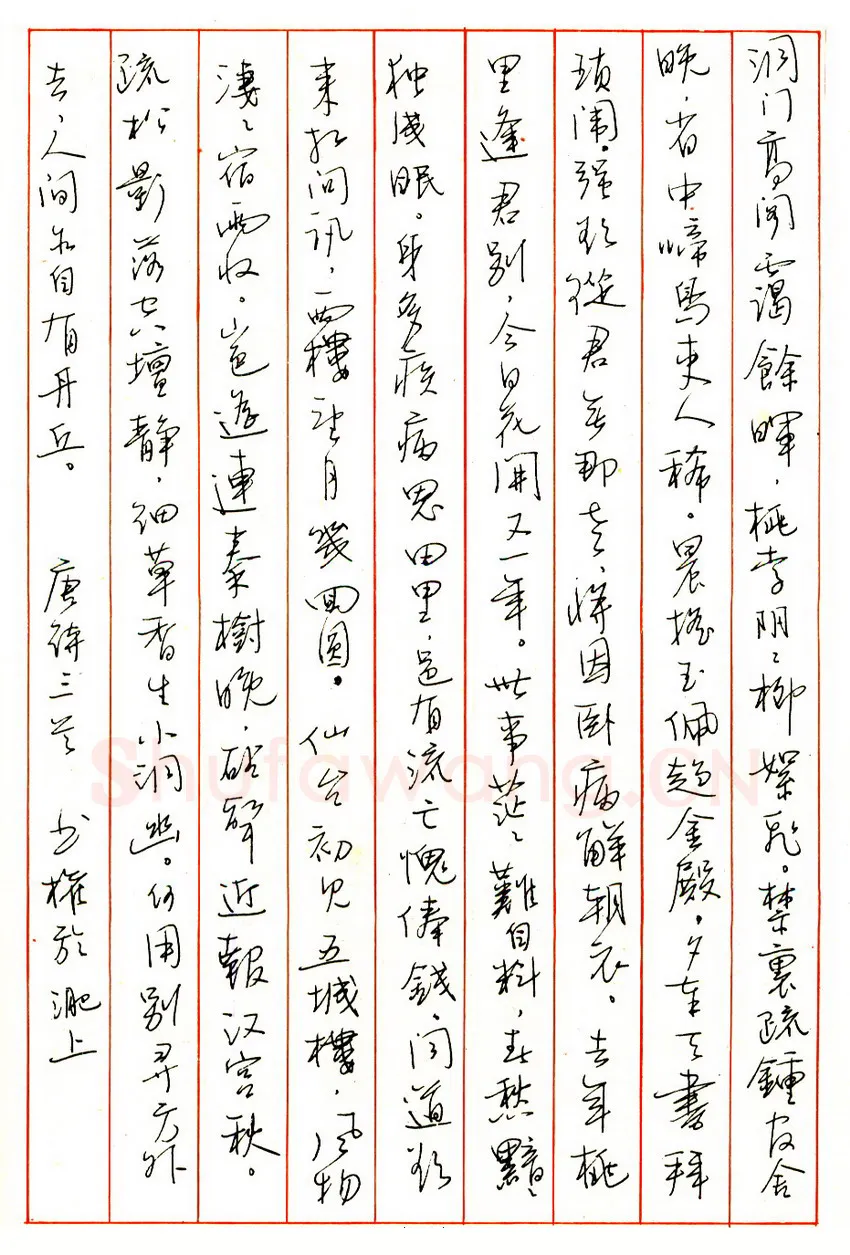 洞门高阁霭餘暉,桃李阴〻柳絮飛。禁裏疏鍾官舍
晚,省中啼鸟吏人稀。晨摇玉佩趋金殿,夕奉天書拜
琐闱。强欲從君无那老,将因卧病解朝衣。去年桃
里逢君别,今日花開又一年。世事茫〻難自料,春愁黯〻
独成眠。身多疾病思田里,邑有流亡愧俸錢。闻道欲
来相问讯,西樓望月幾回圆。仙台初见五城樓,風物
凄〻宿雨收。山色遥連秦樹晚,砧聲近報汉宫秋。
疏松影落空壇静,细草香生小洞幽。何用别寻方外
去,人间亦自有丹丘。 唐诗三首 书權於淝上
Shufawang.CN